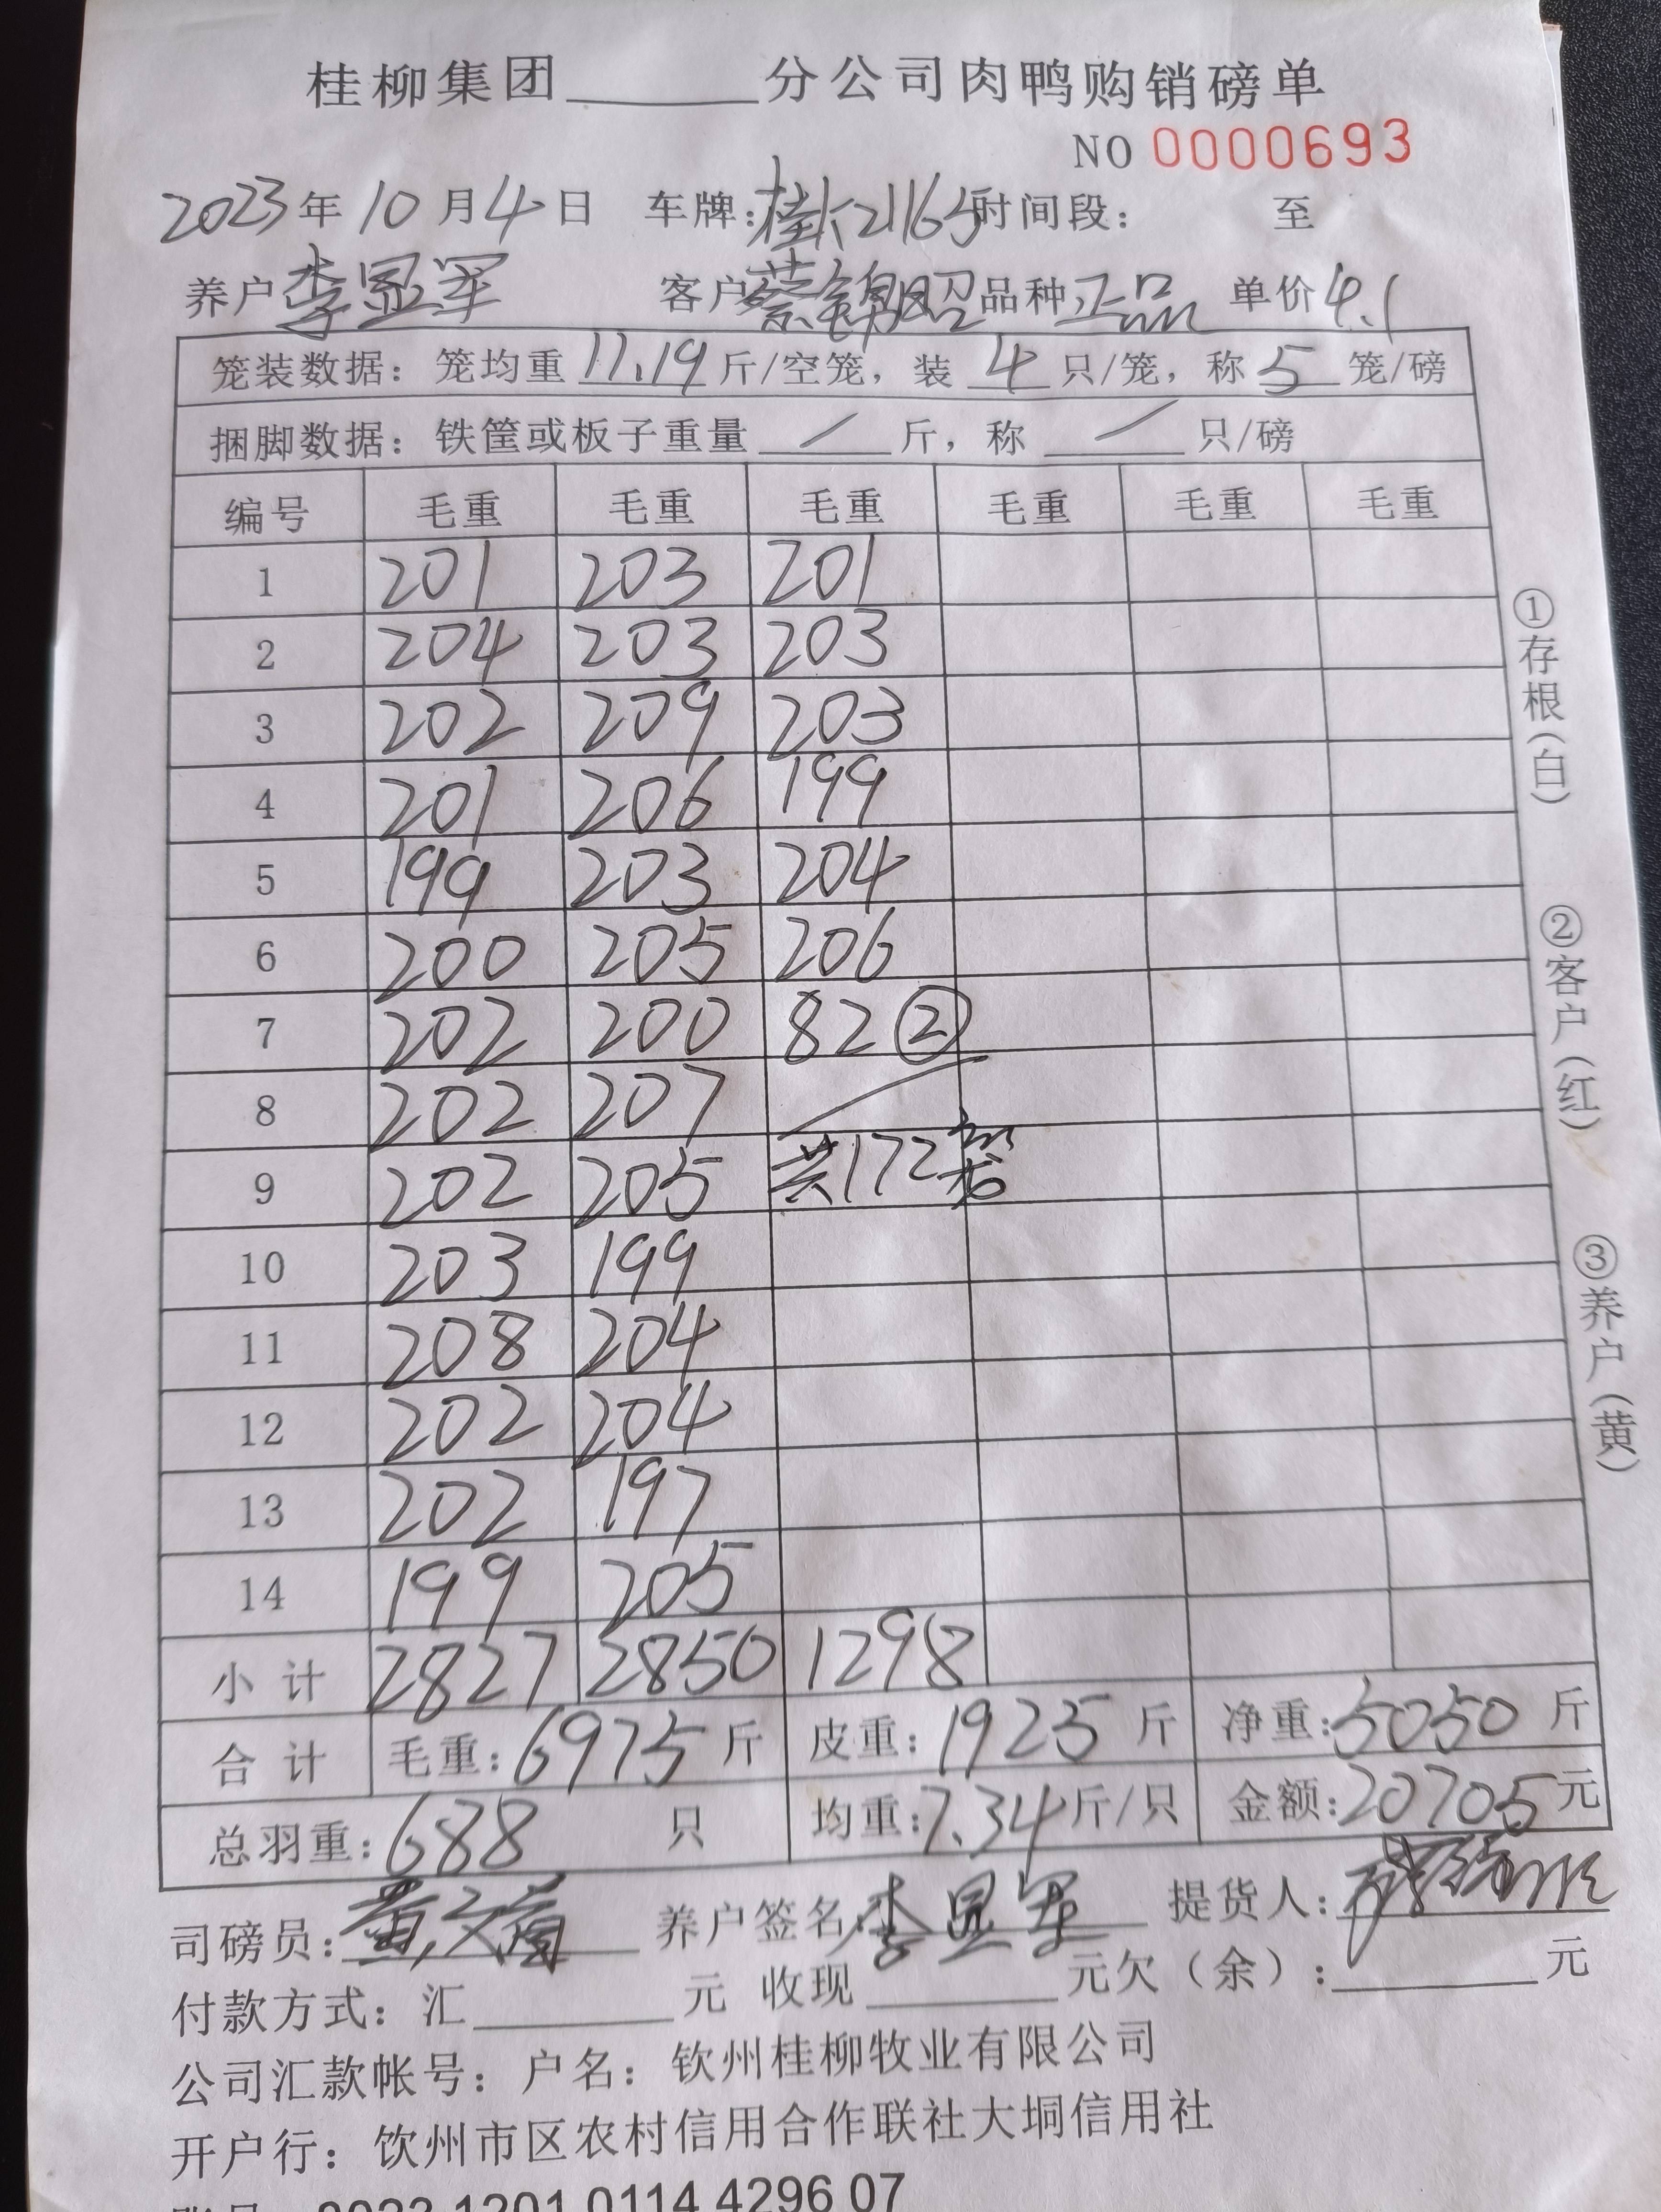 桂柳集团______分公司肉鸭购销磅单
NO 0000693
2023年10月4日 车牌:桂K2116 时间段: 至
养户李显军 客户蔡锦昭 品种正品 单价4.1
笼装数据: 笼均重 11.19 斤/空笼, 装 4 只/笼, 称 5 笼/磅
捆脚数据: 铁筐或板子重量 / 斤, 称 / 只/磅
编号 毛重 毛重 毛重 毛重 毛重 毛重
1 201 203 201
2 204 203 203
3 202 209 203
4 201 206 199
5 199 203 204
6 200 205 206
7 202 200 82 ②
8 202 207
9 202 205 共172笼
10 203 199
11 208 204
12 202 204
13 202 197
14 199 205
小计 2827 2850 1298
合计 毛重:6975斤 皮重:1925斤 净重:5050斤
总羽重:688 只 均重:7.34斤/只 金额:20705元
司磅员:黄文 养户签名:李显军 提货人:
付款方式: 汇______元 收现______元欠(余):______元
公司汇款帐号: 户名: 钦州桂柳牧业有限公司
开户行: 钦州市区农村信用合作联社大垌信用社
①存根(白)
②客户(红)
③养户(黄)